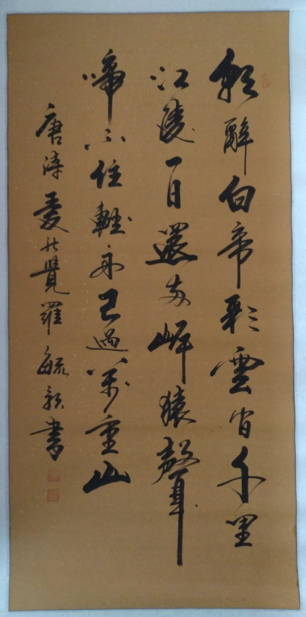 朝辭白帝彩雲間千里
江陵一日還两岸猿聲
啼不住輕舟已過萬重山
唐诗 愛新覺羅 毓 書